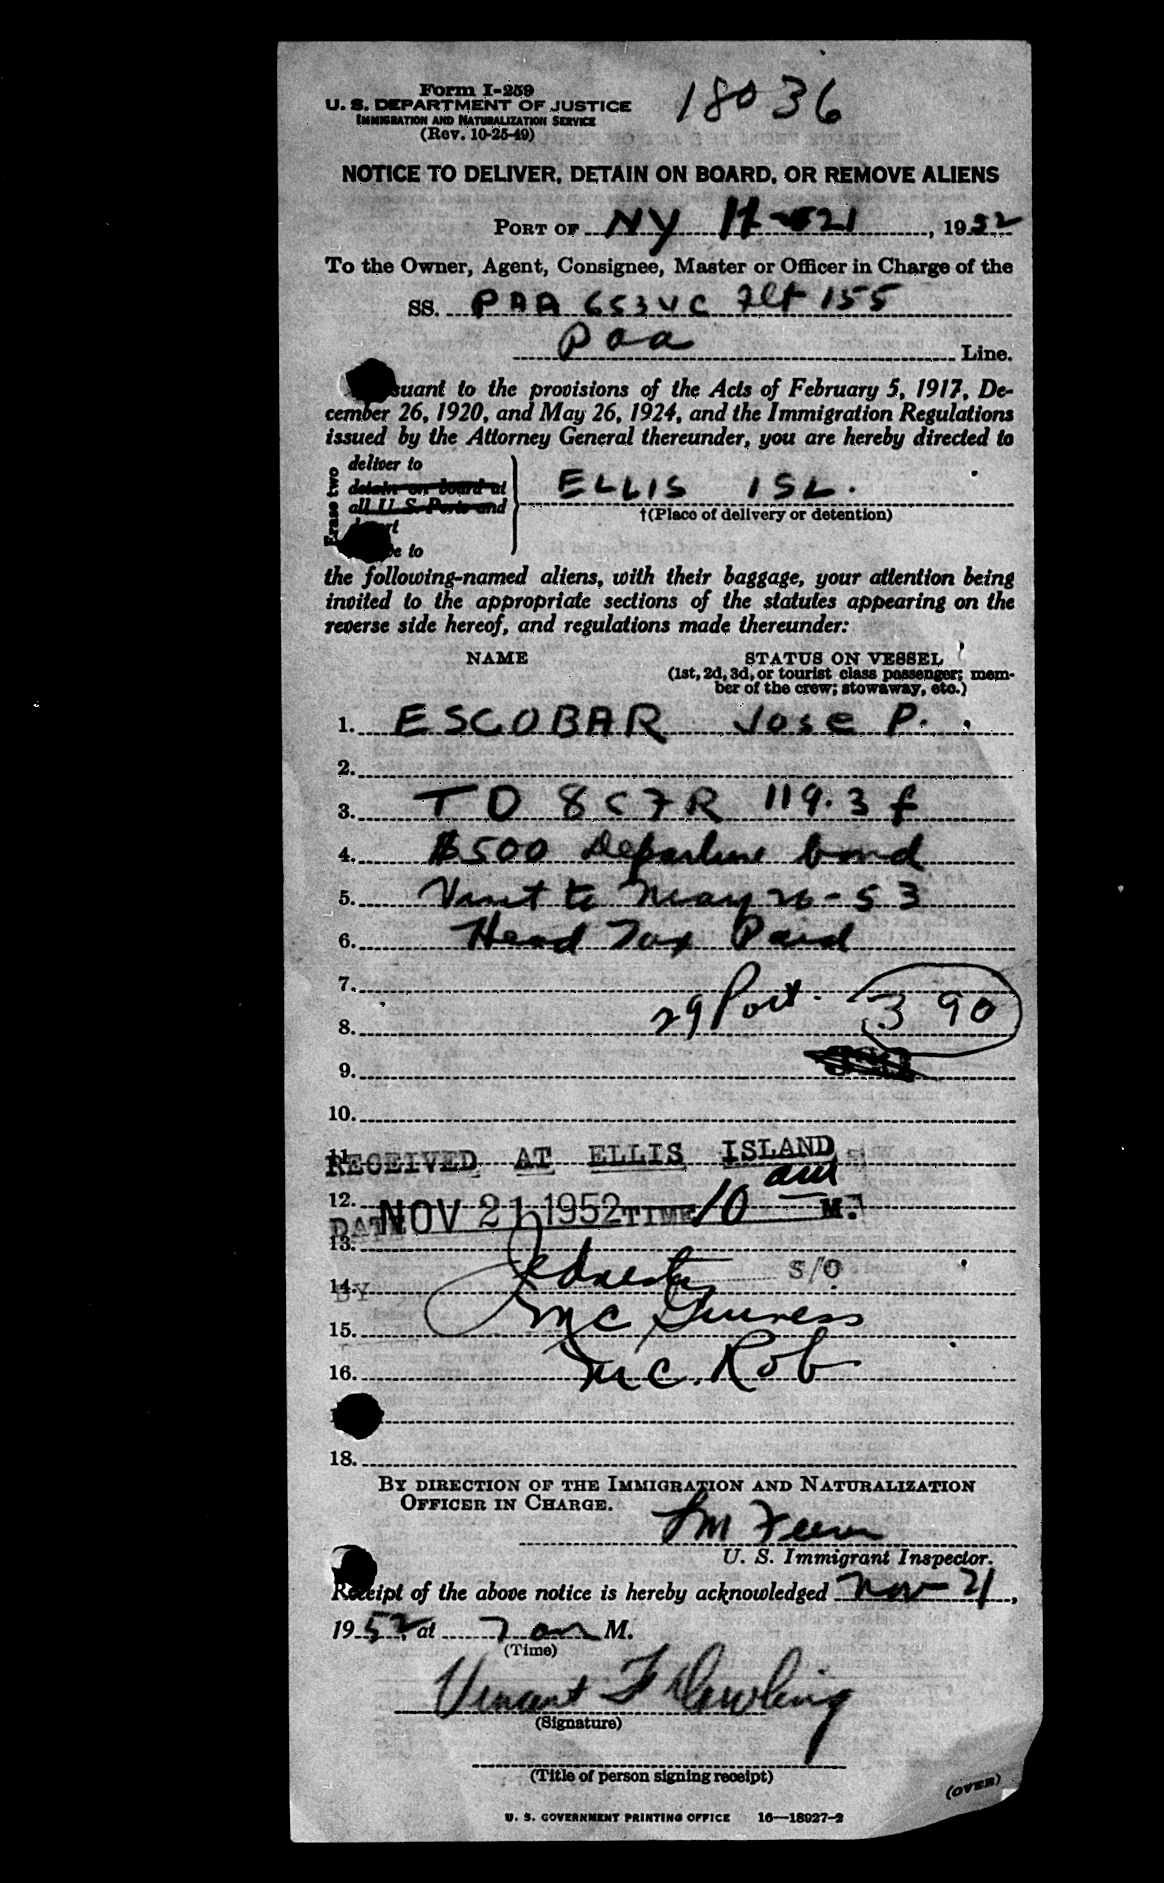 Form I-259
18036
U. S. DEPARTMENT OF JUSTICE
IMMIGRATION AND NATURALIZATION SERVICE
(Rev. 10-25-49)
NOTICE TO DELIVER, DETAIN ON BOARD, OR REMOVE ALIENS
PORT OF NY 11-21, 1952
To the Owner, Agent, Consignee, Master or Officer in Charge of the
SS. PAA 6534C Flt 155
Paa Line.
suant to the provisions of the Acts of February 5, 1917, De-
cember 26, 1920, and May 26, 1924, and the Immigration Regulations
issued by the Attorney General thereunder, you are hereby directed to
Erase two
deliver to
detain on board at
all U. S. Ports and
ELLIS ISL.
†(Place of delivery or detention)
e to
the following-named aliens, with their baggage, your attention being
invited to the appropriate sections of the statutes appearing on the
reverse side hereof, and regulations made thereunder:
NAME STATUS ON VESSEL
(1st, 2d, 3d, or tourist class passenger; mem-
ber of the crew; stowaway, etc.)
1. ESCOBAR Jose P.
2.
3. TD 8CFR 119.3 f
4. $500 Departure bond
5. Visit to May 20-53
6. Head Tax Paid
7.
29 Port. 390
8.
9.
10.
11.
RECEIVED AT ELLIS ISLAND
am
12.
DATE NOV 21 1952 TIME 10 M.
13.
S/O
14.
BY
Mc Guiness
15.
Mc. Rob
16.
18.
BY DIRECTION OF THE IMMIGRATION AND NATURALIZATION
OFFICER IN CHARGE.
U. S. Immigrant Inspector.
Receipt of the above notice is hereby acknowledged Nov 21,
1952, at 7 am M.
(Time)
Vincent F Dowling
(Signature)
(Title of person signing receipt)
(OVER)
U. S. GOVERNMENT PRINTING OFFICE 16—18927-2